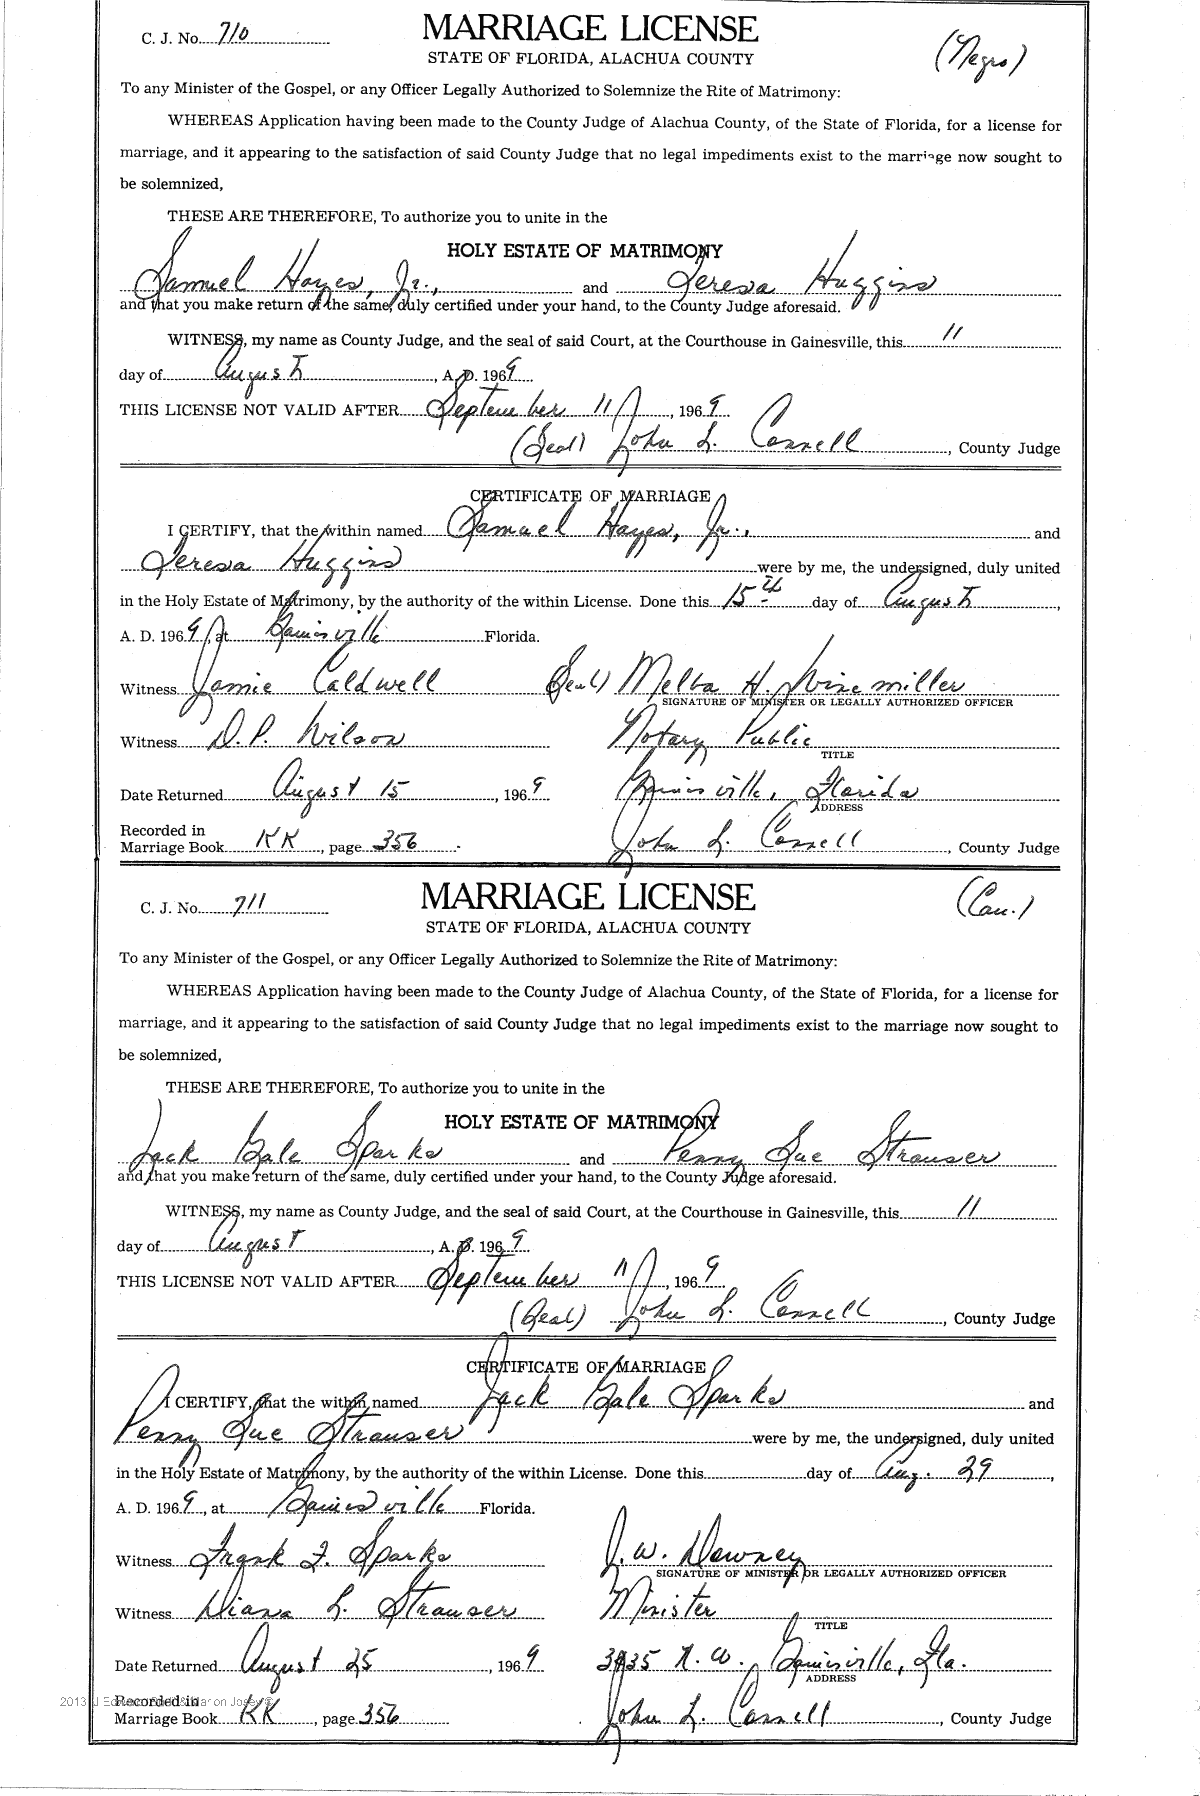 C. J. No. 710
MARRIAGE LICENSE
STATE OF FLORIDA, ALACHUA COUNTY
(Negro)
To any Minister of the Gospel, or any Officer Legally Authorized to Solemnize the Rite of Matrimony:
WHEREAS Application having been made to the County Judge of Alachua County, of the State of Florida, for a license for
marriage, and it appearing to the satisfaction of said County Judge that no legal impediments exist to the marriage now sought to
be solemnized,
THESE ARE THEREFORE, To authorize you to unite in the
HOLY ESTATE OF MATRIMONY
Samuel Hayes, Jr., and Teresa Huggins
and that you make return of the same, duly certified under your hand, to the County Judge aforesaid.
WITNESS, my name as County Judge, and the seal of said Court, at the Courthouse in Gainesville, this 11
day of August, A. D. 1969
THIS LICENSE NOT VALID AFTER September 11, 1969
(Seal) John L. Connell, County Judge
CERTIFICATE OF MARRIAGE
I CERTIFY, that the within named Samuel Hayes, Jr., and
Teresa Huggins were by me, the undersigned, duly united
in the Holy Estate of Matrimony, by the authority of the within License. Done this 15th day of August,
A. D. 1969, at Gainesville Florida.
Witness Jamie Caldwell (Seal) Melba H. Winemiller
SIGNATURE OF MINISTER OR LEGALLY AUTHORIZED OFFICER
Witness D. P. Wilson Notary Public
TITLE
Date Returned August 15, 1969 Gainesville, Florida
ADDRESS
Recorded in
Marriage Book KK, page 356. John L. Connell, County Judge
C. J. No. 711
MARRIAGE LICENSE
STATE OF FLORIDA, ALACHUA COUNTY
(Cau.)
To any Minister of the Gospel, or any Officer Legally Authorized to Solemnize the Rite of Matrimony:
WHEREAS Application having been made to the County Judge of Alachua County, of the State of Florida, for a license for
marriage, and it appearing to the satisfaction of said County Judge that no legal impediments exist to the marriage now sought to
be solemnized,
THESE ARE THEREFORE, To authorize you to unite in the
HOLY ESTATE OF MATRIMONY
Jack Gale Sparks and Penny Sue Strauser
and that you make return of the same, duly certified under your hand, to the County Judge aforesaid.
WITNESS, my name as County Judge, and the seal of said Court, at the Courthouse in Gainesville, this 11
day of August, A. D. 1969
THIS LICENSE NOT VALID AFTER September 11, 1969
(Seal) John L. Connell, County Judge
CERTIFICATE OF MARRIAGE
I CERTIFY, that the within named Jack Gale Sparks and
Penny Sue Strauser were by me, the undersigned, duly united
in the Holy Estate of Matrimony, by the authority of the within License. Done this day of Aug. 29,
A. D. 1969, at Gainesville Florida.
Witness Frank F. Sparks J. W. Downey
SIGNATURE OF MINISTER OR LEGALLY AUTHORIZED OFFICER
Witness Diana L. Strauser Minister
TITLE
Date Returned August 25, 1969 N. W., Gainesville, Fla.
ADDRESS
Recorded in
Marriage Book KK, page 356 John L. Connell, County Judge
2013 J